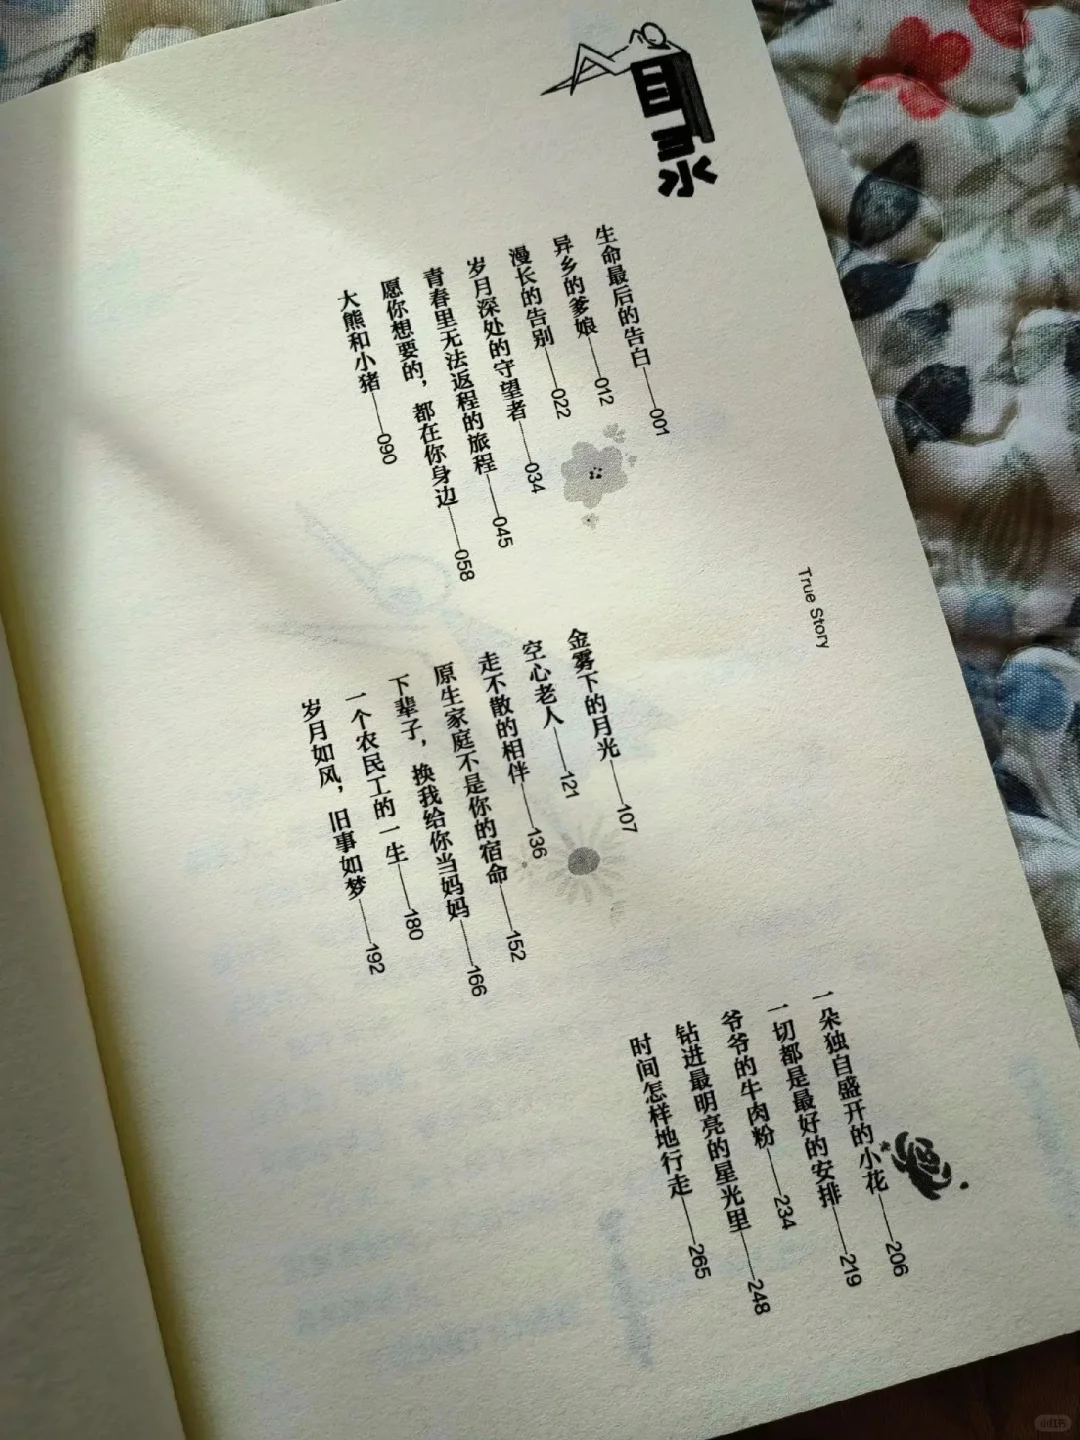 目录
生命最后的告白——001
异乡的爹娘——012
漫长的告别——022
岁月深处的守望者——034
青春里无法返程的旅程——045
愿你想要的，都在你身边——058
大熊和小猪——090
True Story
金雾下的月光——107
空心老人——121
走不散的相伴——136
原生家庭不是你的宿命——152
下辈子，换我给你当妈妈——166
一个农民工的一生——180
岁月如风，旧事如梦——192
一朵独自盛开的小花——206
一切都是最好的安排——219
爷爷的牛肉粉——234
钻进最明亮的星光里——248
时间怎样地行走——265
小红书